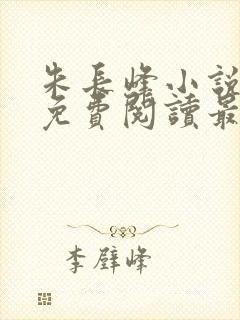 朱長峰小說
免費閱讀最
李壁峰